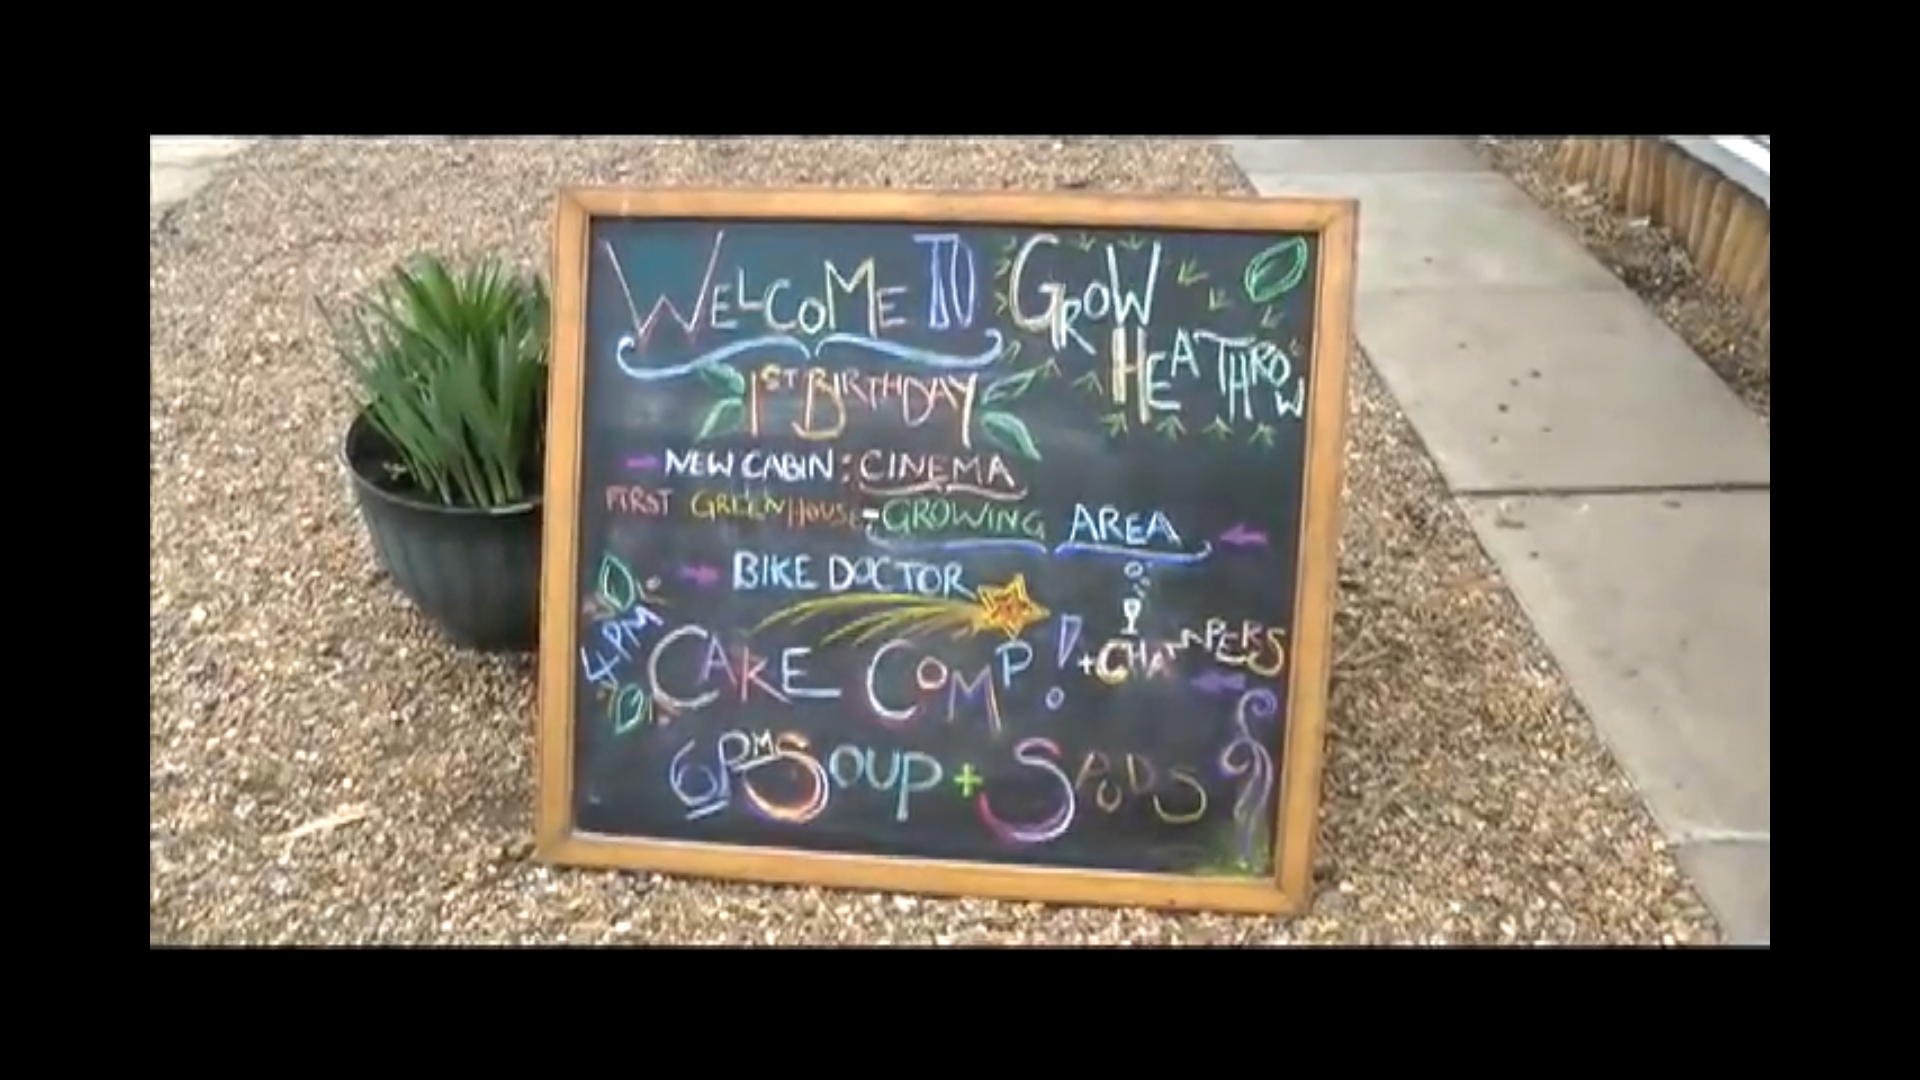 WELCOME TO GROW HEATHROW
1ST BIRTHDAY
NEW CABIN: CINEMA
FIRST GREENHOUSE - GROWING AREA
BIKE DOCTOR
4PM CAKE COMP! + CHAMPERS
6PM SOUP + SPUDS